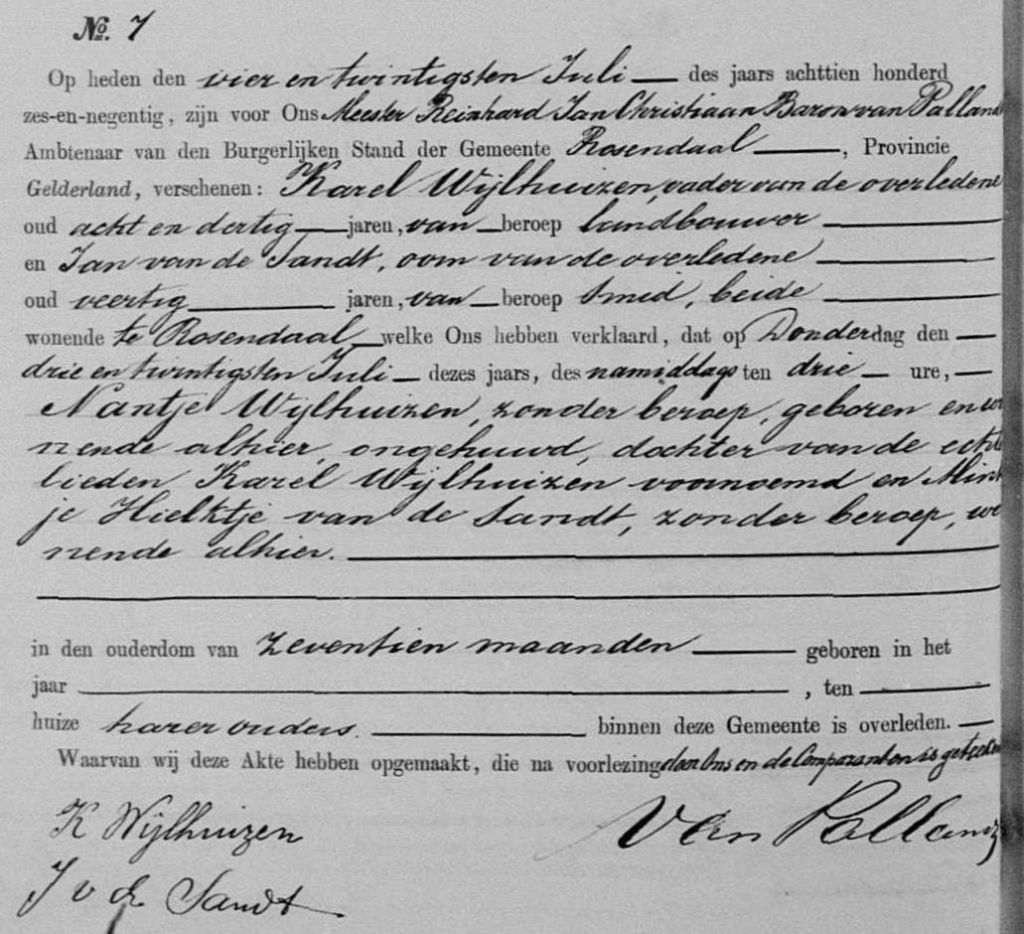 No. 7
Op heden den vier en twintigsten Juli — des jaars achttien honderd
zes-en-negentig, zijn voor Ons Meester Reinhard Jan Christiaan Baron van Palland
Ambtenaar van den Burgerlijken Stand der Gemeente Rosendaal —, Provincie
Gelderland, verschenen: Karel Wijlhuizen, vader van de overledene
oud acht en dertig — jaren, van — beroep landbouwer —
en Jan van de Sandt, oom van de overledene —
oud veertig — jaren, van — beroep Smid, beide —
wonende te Rosendaal — welke Ons hebben verklaard, dat op Donderdag den —
drie en twintigsten Juli — dezes jaars, des namiddags ten drie — ure, —
Nantje Wijlhuizen, zonder beroep, geboren en wo
nende alhier, ongehuwd, dochter van de echt
lieden Karel Wijlhuizen voornoemd en Mint
je Hielktje van de Sandt, zonder beroep, wo
nende alhier. —
in den ouderdom van zeventien maanden — geboren in het
jaar —, ten —
huize harer ouders. — binnen deze Gemeente is overleden. —
Waarvan wij deze Akte hebben opgemaakt, die na voorlezing door Ons en de Comparanten is geteeken
K Wijlhuizen
Van Pallandt
J v de Sandt